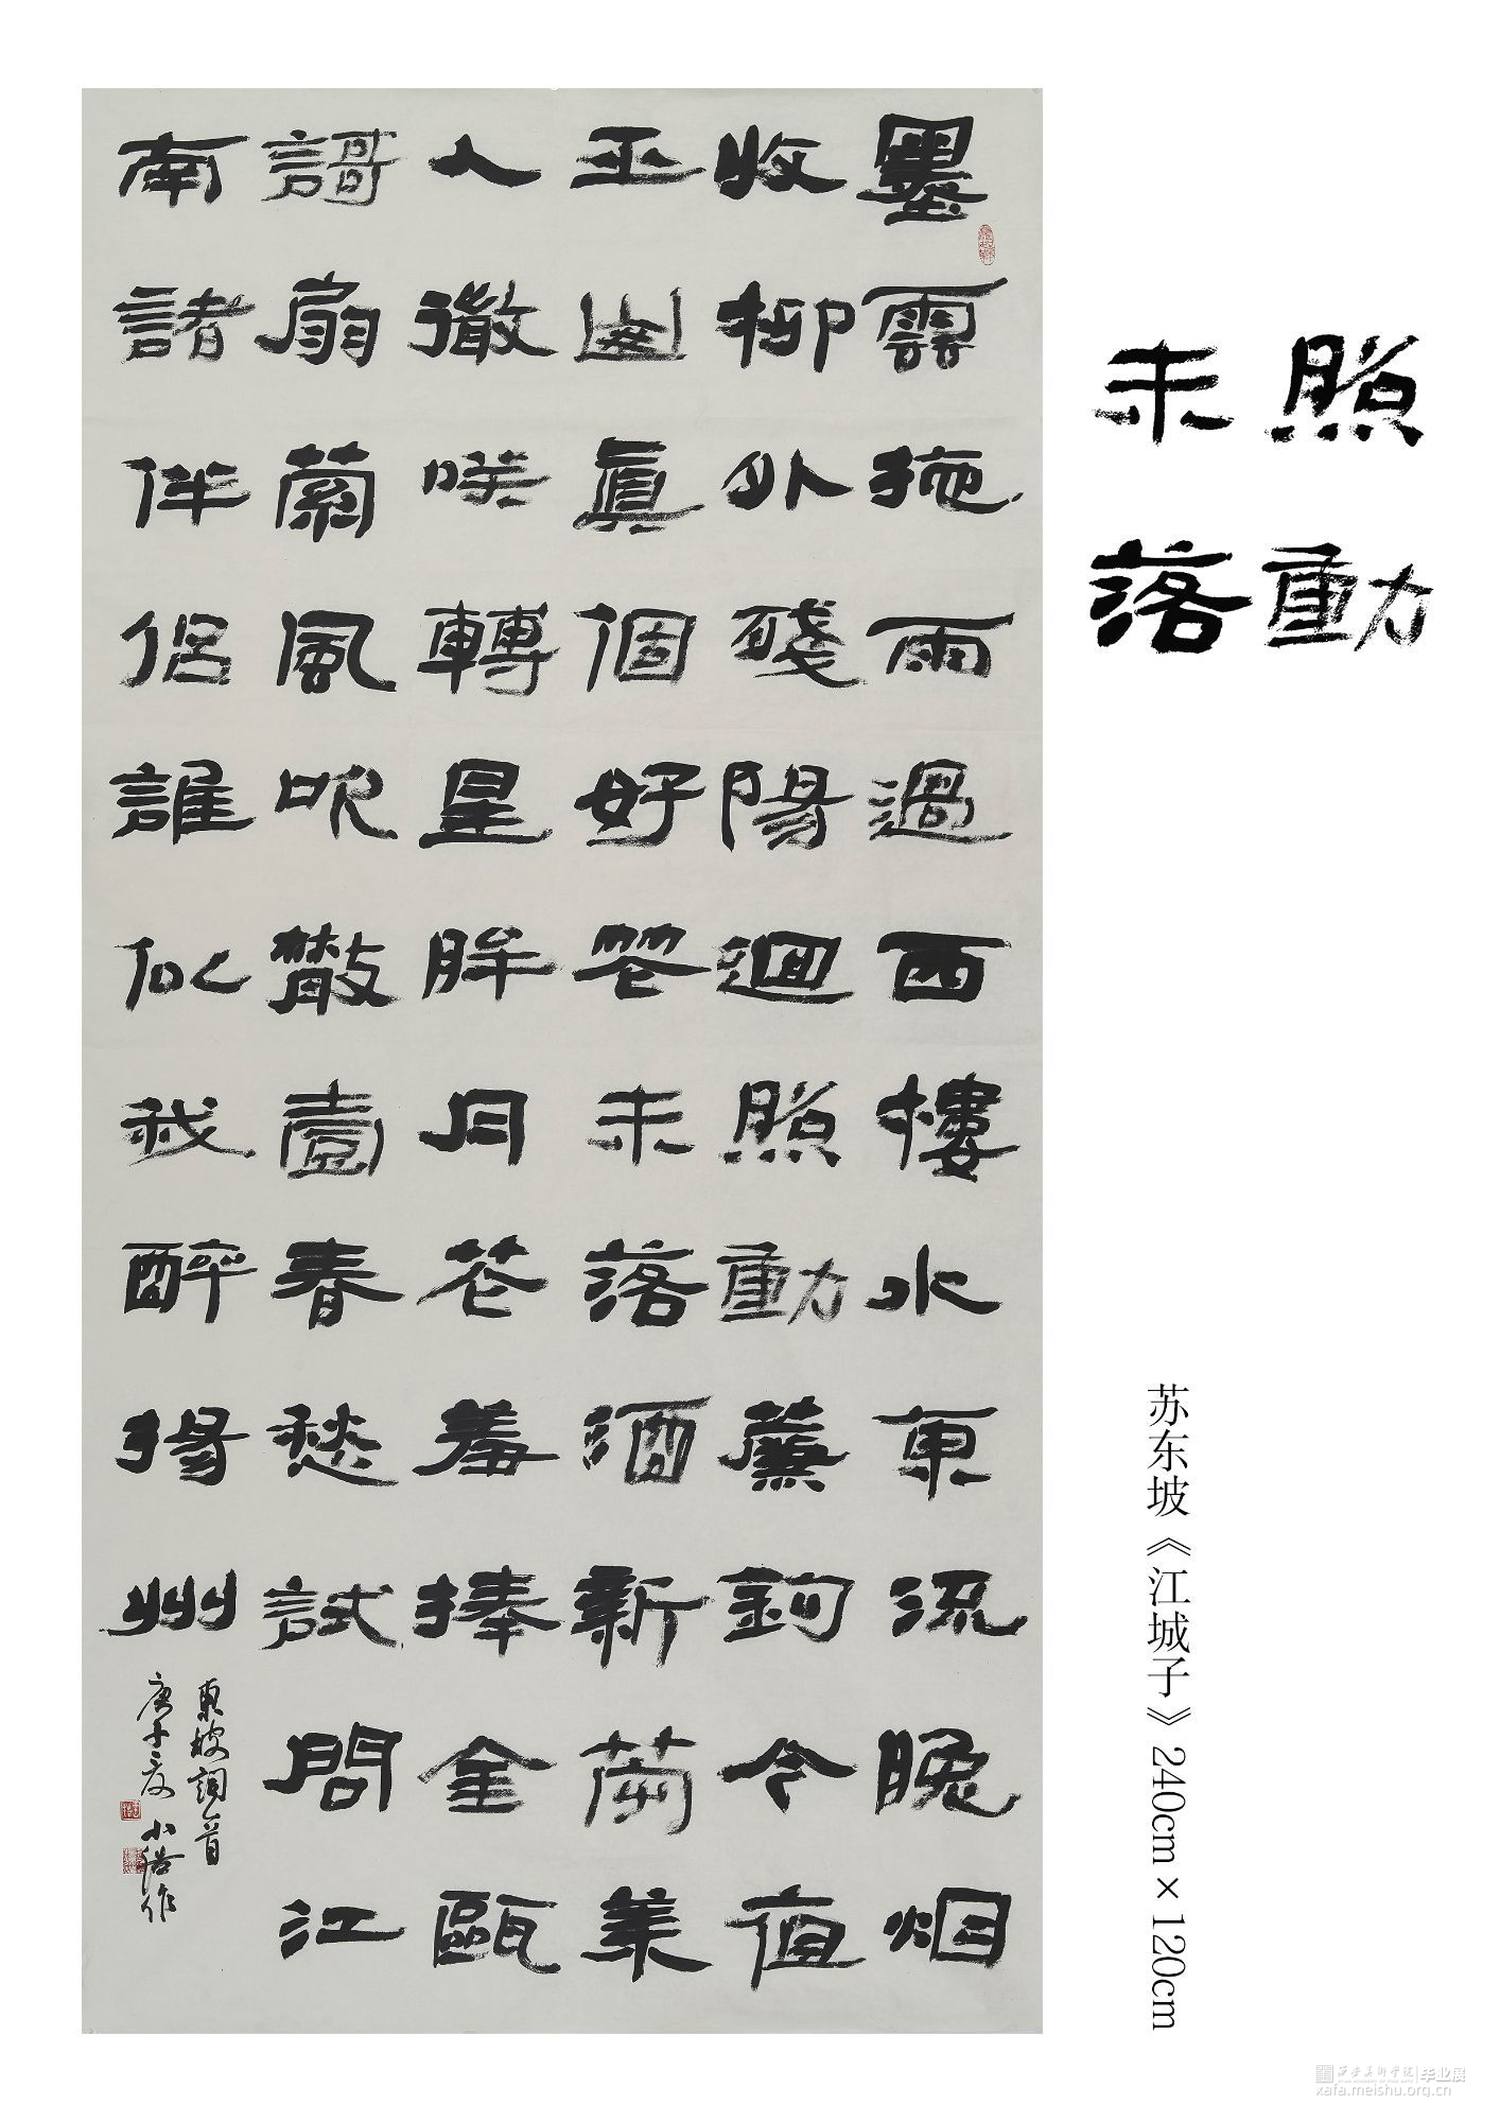 墨雲拖雨過西樓水東流晚烟
收柳外殘陽迴照動簾鉤今夜
巫山眞個好花未落酒新篘美
人微咲轉星眸月花羞捧金甌
謌扇縈風吹散壹春愁試問江
南諸伴侶誰似我醉揚州
東坡詞一首
庚子夏 小浴作
照動
未落
苏东坡《江城子》240cm×120cm
西安美术学院 毕业展
xafa.meishu.org.cn